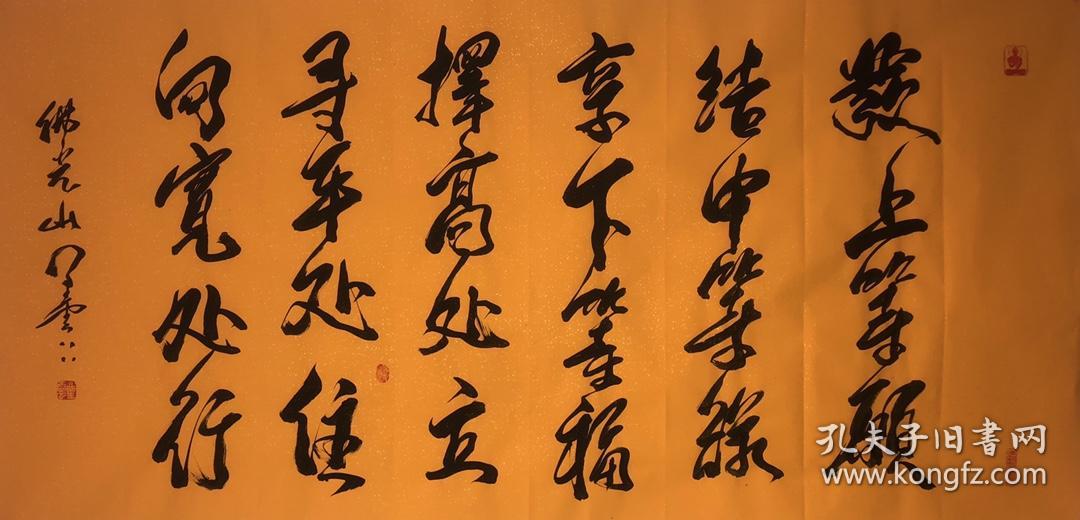 發上等願
結中等緣
享下等福
擇高处立
寻平处住
向寬处行
佛光山
孔夫子旧书网
www.kongfz.com